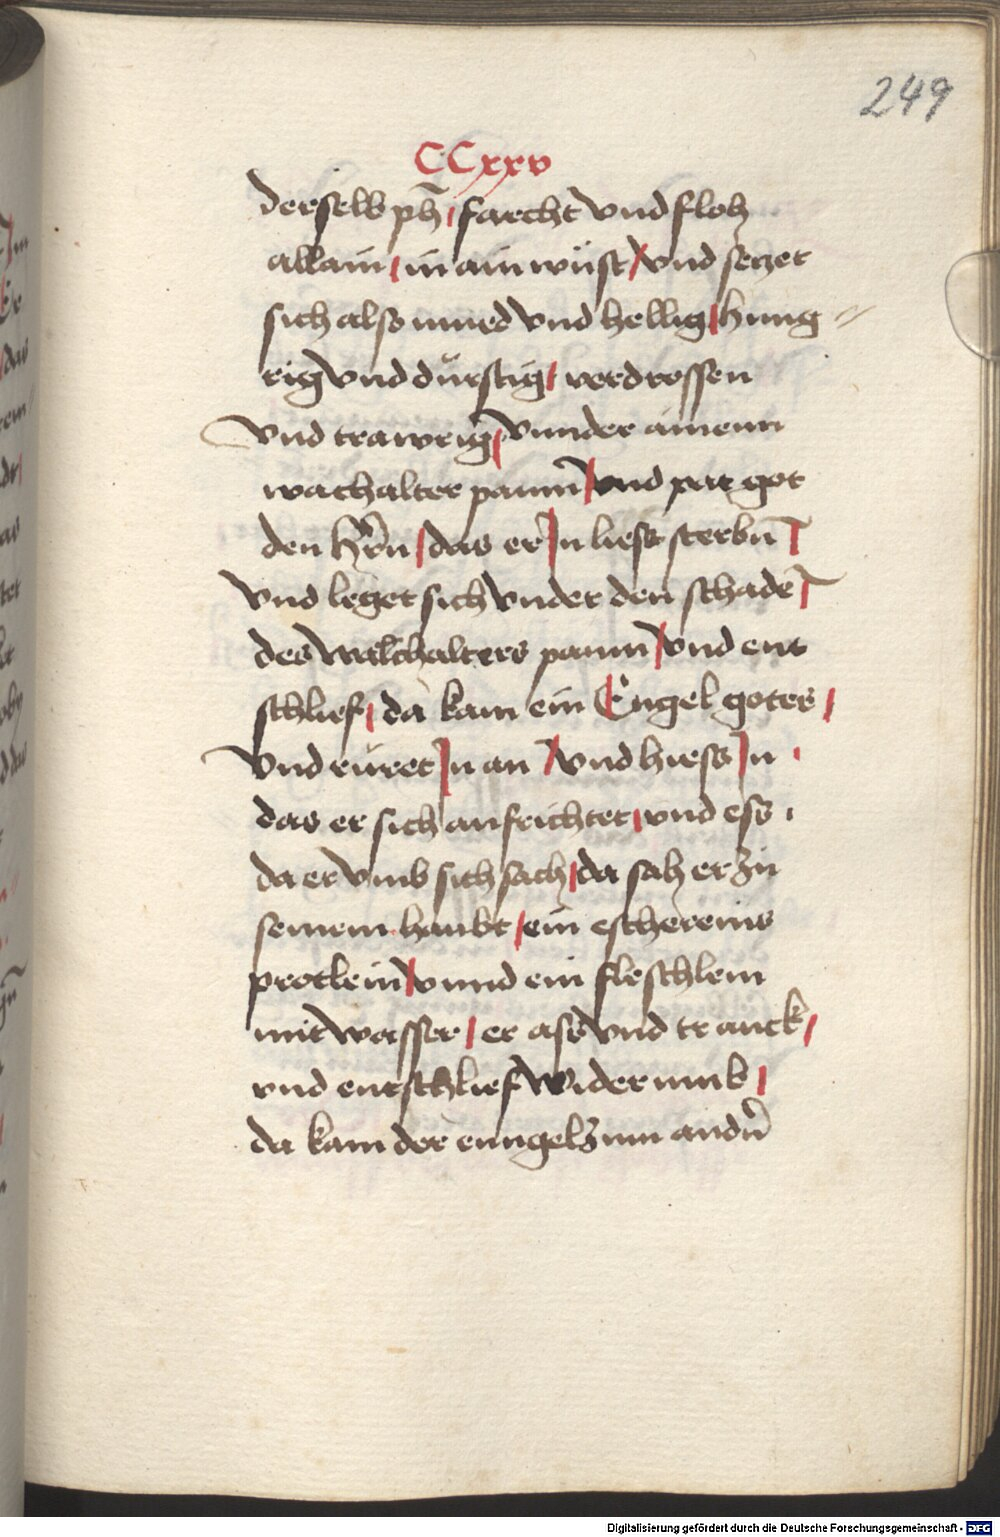 249
CCxxv
derselb ph̄ / farcht vnd floh
allain / in ain wüst / vnd setzet
sich also mued vnd hellig / hung⸗
rig vnd dürstig / verdrossen
vnd trawrig / vnnder ainenn
wachalter paum̄ / vnd pat got
den h̄rn / das er Jn liess sterbn̄ /
vnd leget sich vnder den schadē /
des walchalters paum / vnd ent
schlief / da kam ein Engel gotes /
vnd rüret Jn an / vnd hiess Jn /
das er sich aufrichtet / vnd ess /
da er vmb sich sach / da sah er zu
seinem haubt / ein eschereins
protlein / vnnd ein fleschlein
mit wasser / er ass vnd tranck /
vnd entschlief widerumb /
da kam der enngel zum andn̄
Digitalisierung gefördert durch die Deutsche Forschungsgemeinschaft - DFG